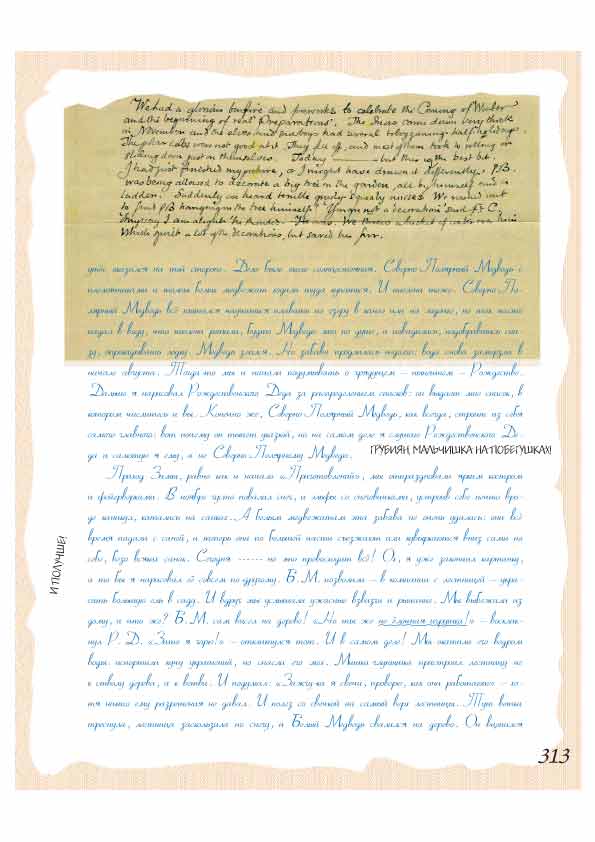 We had a glorious bonfire and fireworks to celebrate the Coming of Winter
and the beginning of real 'Preparations'. The snow came down very thick
in November and the elves and snowboys had several tobogganing half-holidays.
The polar cubs were not good at it. They fell off, and most of them took to rolling or
sliding down just on themselves. Today ——— but this is the best bit.
I had just finished my picture, or I might have drawn it differently. PB
was being allowed to decorate a big tree in the garden, all by himself and a
ladder. Suddenly we heard terrible growly squealy noises. We rushed out
to find PB hanging on the tree himself! 'You are not a decoration' said F C.
'Anyway I am alight' he shouted. He was. We threw a bucket of water over him.
Which spoilt a lot of the decorations, but saved his fur.
олёт оказался на той стороне. Дело было после солнцестояния. Северно-Полярный Медведь с
племянниками и толпы белых медвежат ходили туда купаться. И тюлени тоже. Северно-По-
лярный Медведь всё пытался научиться плавать по озеру в каноэ или на лодочке, но так часто
падал в воду, что тюлени решили, будто Медведю это по душе, и повадились, подобравшись сни-
зу, переворачивать лодку. Медведь злился. Но забава продлилась недолго: вода снова замёрзла в
начале августа. Тогда-то мы и начали подумывать о грядущем – нынешнем – Рождестве.
Дальше я нарисовал Рождественского Деда за распределением списков: он выдаёт мне список, в
котором числитесь и вы. Конечно же, Северно-Полярный Медведь, как всегда, строит из себя
самого главного: вот почему он тычет указкой, но на самом деле я слушаю Рождественского Де-
да и салютую я ему, а не Северно-Полярному Медведю.
ГРУБИЯН, МАЛЬЧИШКА НА ПОБЕГУШКАХ!
Приход Зимы, равно как и начало «Приготовлений», мы отпраздновали ярким костром
и фейерверками. В ноябре густо повалил снег, и эльфы со снеговичками, устроив себе нечто вро-
де каникул, катались на санках. А белым медвежатам эта забава не очень удалась: они всё
время падали с саней, и теперь они по большей части съезжают или кувыркаются вниз сами по
себе, безо всяких санок. Сегодня ------ но это превосходит всё! Ох, я уже закончил картинку,
а то бы я нарисовал её совсем по-другому. Б.М. позволили – в компании с лестницей – укра-
сить большую ель в саду. И вдруг мы услышали ужасные взвизги и рычание. Мы выбежали из
дому, и что же? Б.М. сам висел на дереве! «Но ты же не ёлочная игрушка!» – восклик-
нул Р. Д. «Зато я горю!» – откликнулся тот. И в самом деле! Мы окатили его ведром
воды: испортили кучу украшений, но спасли его мех. Миша-глупышка пристроил лестницу не
к стволу дерева, а к ветви. И подумал: «Зажгу-ка я свечи, проверю, как они работают» – хо-
тя никто ему разрешения не давал. И полез со свечкой на самый верх лестницы. Тут ветка
треснула, лестница заскользила по снегу, и Белый Медведь свалился на дерево. Он вцепился
И ПОЛУЧШЕ!
313